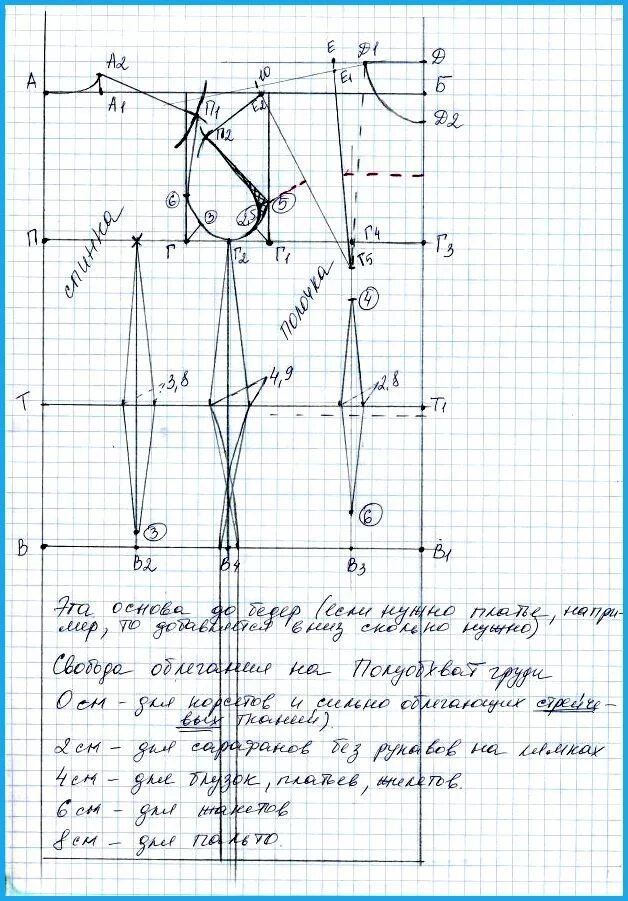 Е Д1 Д
А2 10 Е1
А А1 Е2 Б
П1
П2 Д2
6 3 2,5 5
П Г Г2 Г1 Г4 Г3
Г5
спинка полочка
4
3,8 4,9 2,8
Т Т1
6
3
В В2 В4 В3 В1
Эта основа до бедер (если нужно платье, напри-
мер, то добавляется вниз сколько нужно)
Свобода облегания на Полуобхват груди
0 см - для корсетов и сильно облегающих стрейче-
вых тканей).
2 см - для сарафанов без рукавов на лямках
4 см - для блузок, платьев, жилетов.
6 см - для жакетов
8 см - для пальто.